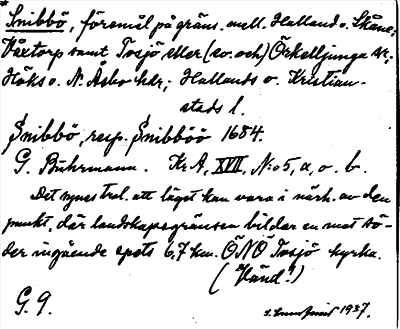 * Snibbö, föremål på gräns. mell. Halland o. Skåne;
Våxtorp samt Tosjö eller (ev. och) Örkelljunga sn;
Höks o. N. Åsbo hdr; Hallands o. Kristian-
stads l.
Snibbö, resp. Snibböö 1684.
G. Buhrmann. Kr A, XVII, N:o 5, a, o. b.
Det synes trol. att läget kan vara i närh. av den
punkt, där landskapsgränsen bildar en mot sö-
der ingående spets 6,7 km. ÖNÖ Tosjö kyrka.
(Vänd!)
G. 9.
1937.